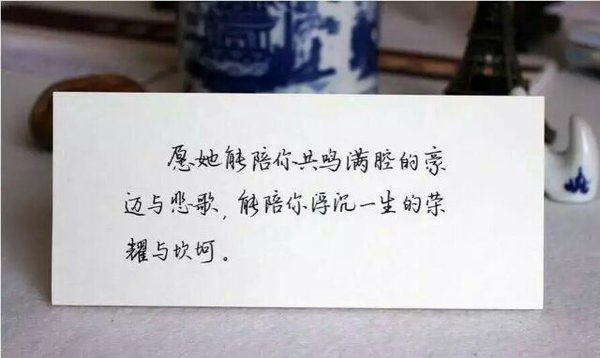 愿她能陪你共鸣满腔的豪
迈与悲歌，能陪你浮沉一生的荣
耀与坎坷。